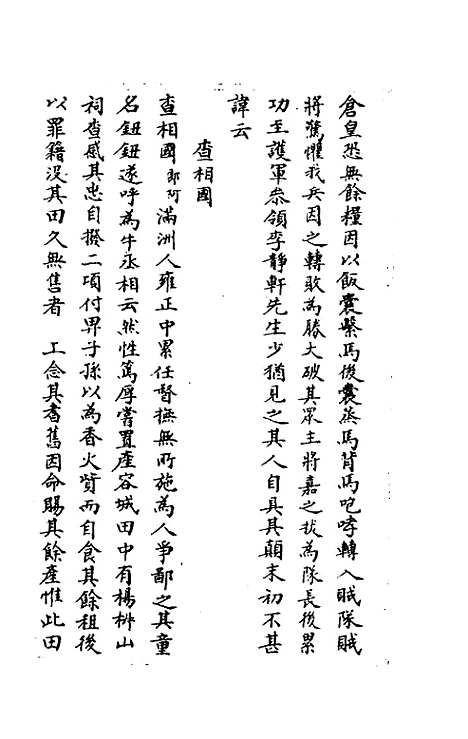 倉皇恐無餘糧因以飯囊繫馬後囊蒸馬背馬咆哮轉入賊隊賊
將驚懼我兵因之轉敗為勝大破其眾主將嘉之拔為隊長後累
功至護軍叅領李靜軒先生少猶見之其人自具其顛末初不甚
諱云
查相國
查相國郎阿滿洲人雍正中累任督撫無所施為人爭鄙之其童
名鈕鈕遂呼為牛丞相云然性篤厚嘗置產容城田中有楊椒山
祠查感其忠自撥二項付畀子孫以為香火貲而自食其餘租後
以罪籍沒其田久無售者 上念其耆舊因命賜其餘產惟此田